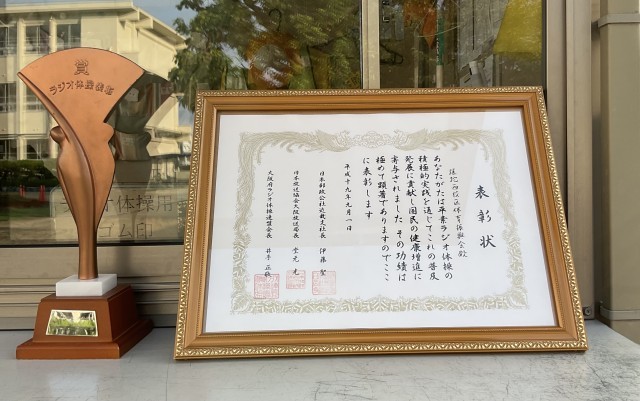 賞
ラジオ体操表彰
表彰状
西校区体育振興会殿
あなたがたは平素ラジオ体操の
積極的実践を通じてこれの普及
発展に貢献し国民の健康増進に
寄与されました その功績は
極めて顕著でありますのでここ
に表彰します
平成十九年九月一日
日本郵政公社近畿支社長 伊藤
日本放送協会大阪放送局長 堂元 光
大阪府ラジオ体操連盟会長 井手 正敬
体操用
ゴム印